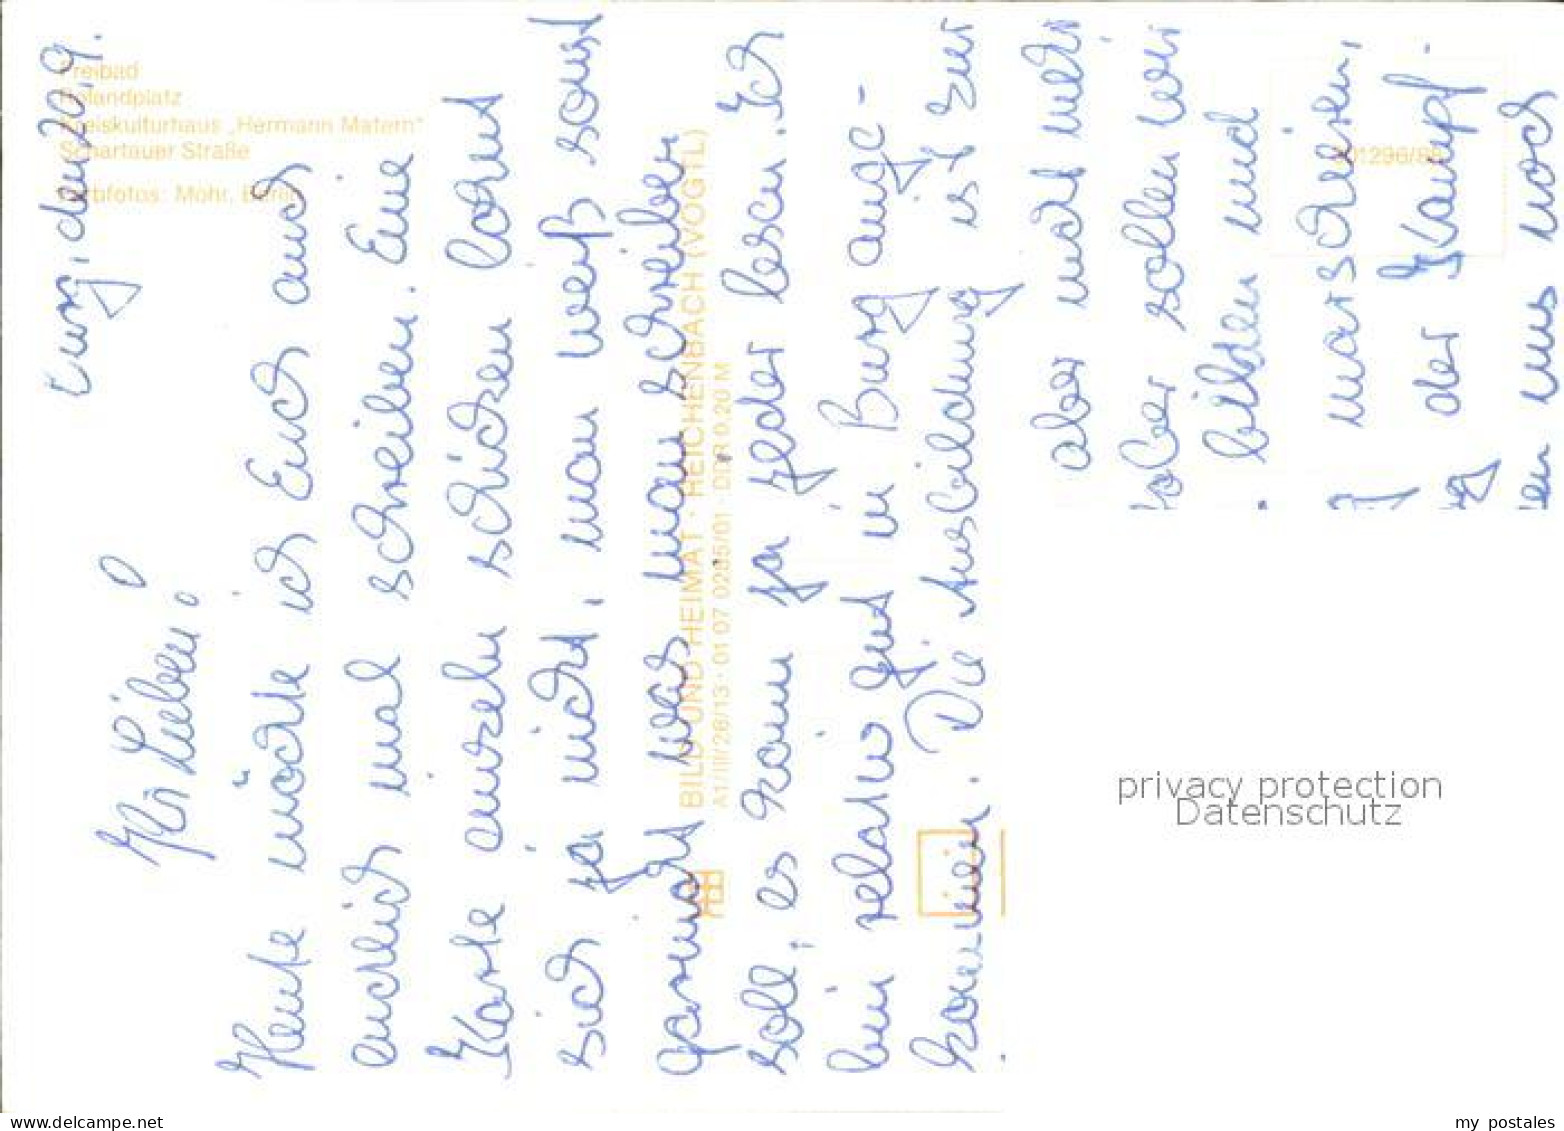 Burg, den 20.9.
Ihr Lieben!
Heute möchte ich Euch auch
endlich mal schreiben. Eine
Karte einzeln schicken lohnt
sich ja nicht, man weiß sonst
garnicht was man schreiben
soll, es kann ja jeder lesen. Ich
bin relativ gut in Burg ange-
kommen. Die Ausbildung ist zur
aber nicht mehr
sollen wir
bilden und
marschieren,
der Kampf.
uns noch
Freibad
Rolandplatz
Kreiskulturhaus „Hermann Matern"
Schartauer Straße
Farbfotos: Mohr, Berlin
BILD UND HEIMAT · REICHENBACH (VOGTL)
A1/III/26/13 · 01 07 0285/01 · DDR 0,20 M
01296/88
privacy protection
Datenschutz
www.delcampe.net
my_postales